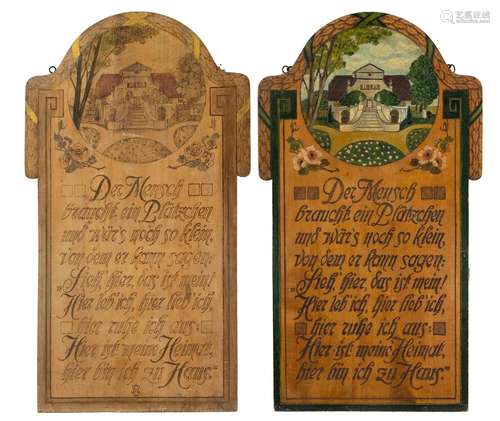 艺狐在线
Der Mensch
braucht ein Plätzchen
und wär's noch so klein,
von dem er kann sagen:
„Sieh' hier, das ist mein!
Hier leb' ich, hier lieb' ich,
hier ruhe ich aus:
Hier ist meine Heimat,
hier bin ich zu Haus."
Der Mensch
braucht ein Plätzchen
und wär's noch so klein,
von dem er kann sagen:
„Sieh' hier, das ist mein!
Hier leb' ich, hier lieb' ich,
hier ruhe ich aus:
Hier ist meine Heimat,
hier bin ich zu Haus."